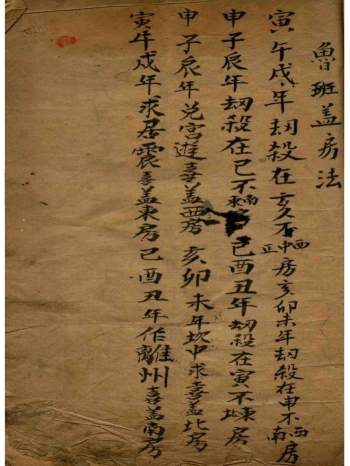 魯班盖房法
寅午戌年刼殺在亥不正中西房亥卯未年刼殺在申不西南房
申子辰年刼殺在巳不南房巳酉丑年刼殺在寅不東房
申子辰年兑宫遊喜盖西房亥卯未年坎中求喜盖北房
寅午戌年求居震喜盖東房巳酉丑年作離州喜盖南房